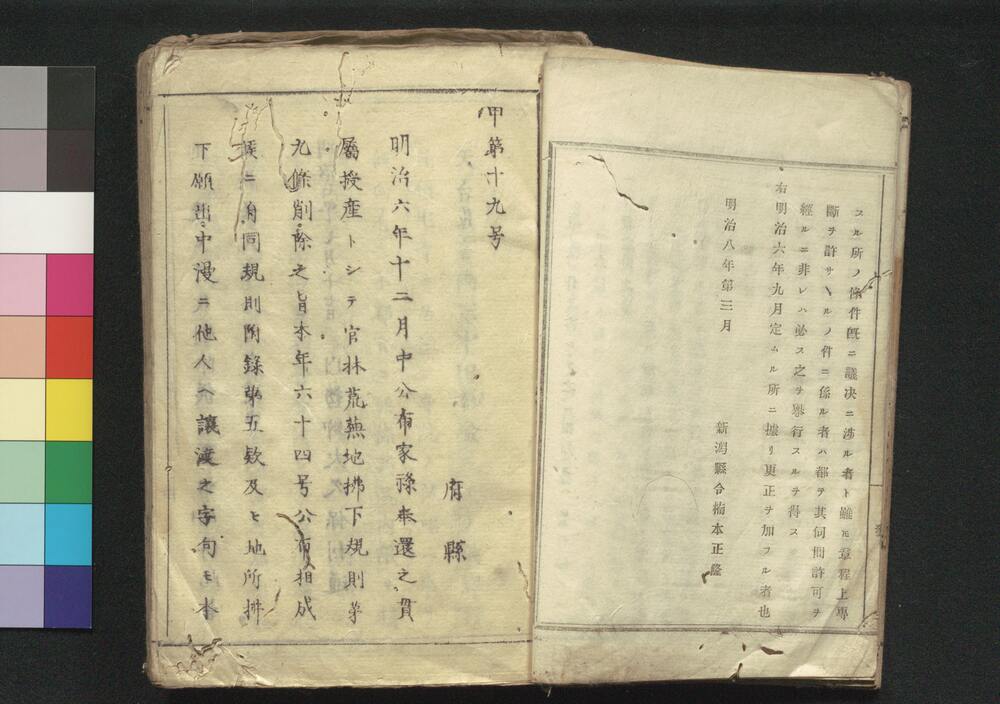 スル所ノ條件既ニ議决ニ渉ル者ト雖モ章程上專
斷ヲ許サヽルノ件ニ係ル者ハ都テ其伺闁許可ヲ
經ルニ非レハ必ス之ヲ擧行スルヲ得ス
右明治六年九月定ムル所ニ據リ更正ヲ加フル者也
明治八年第三月
新潟縣令楠本正隆
甲第十九号
府縣
明治六年十二月中公布家祿奉還之貫
屬授産トシテ官林荒蕪地拂下規則第
九條削除之旨本年六十四号公布相成
候ニ付同規則附錄第五欵及ヒ地所拂
下願出中漫ニ他人ヘ讓渡之字句モ本